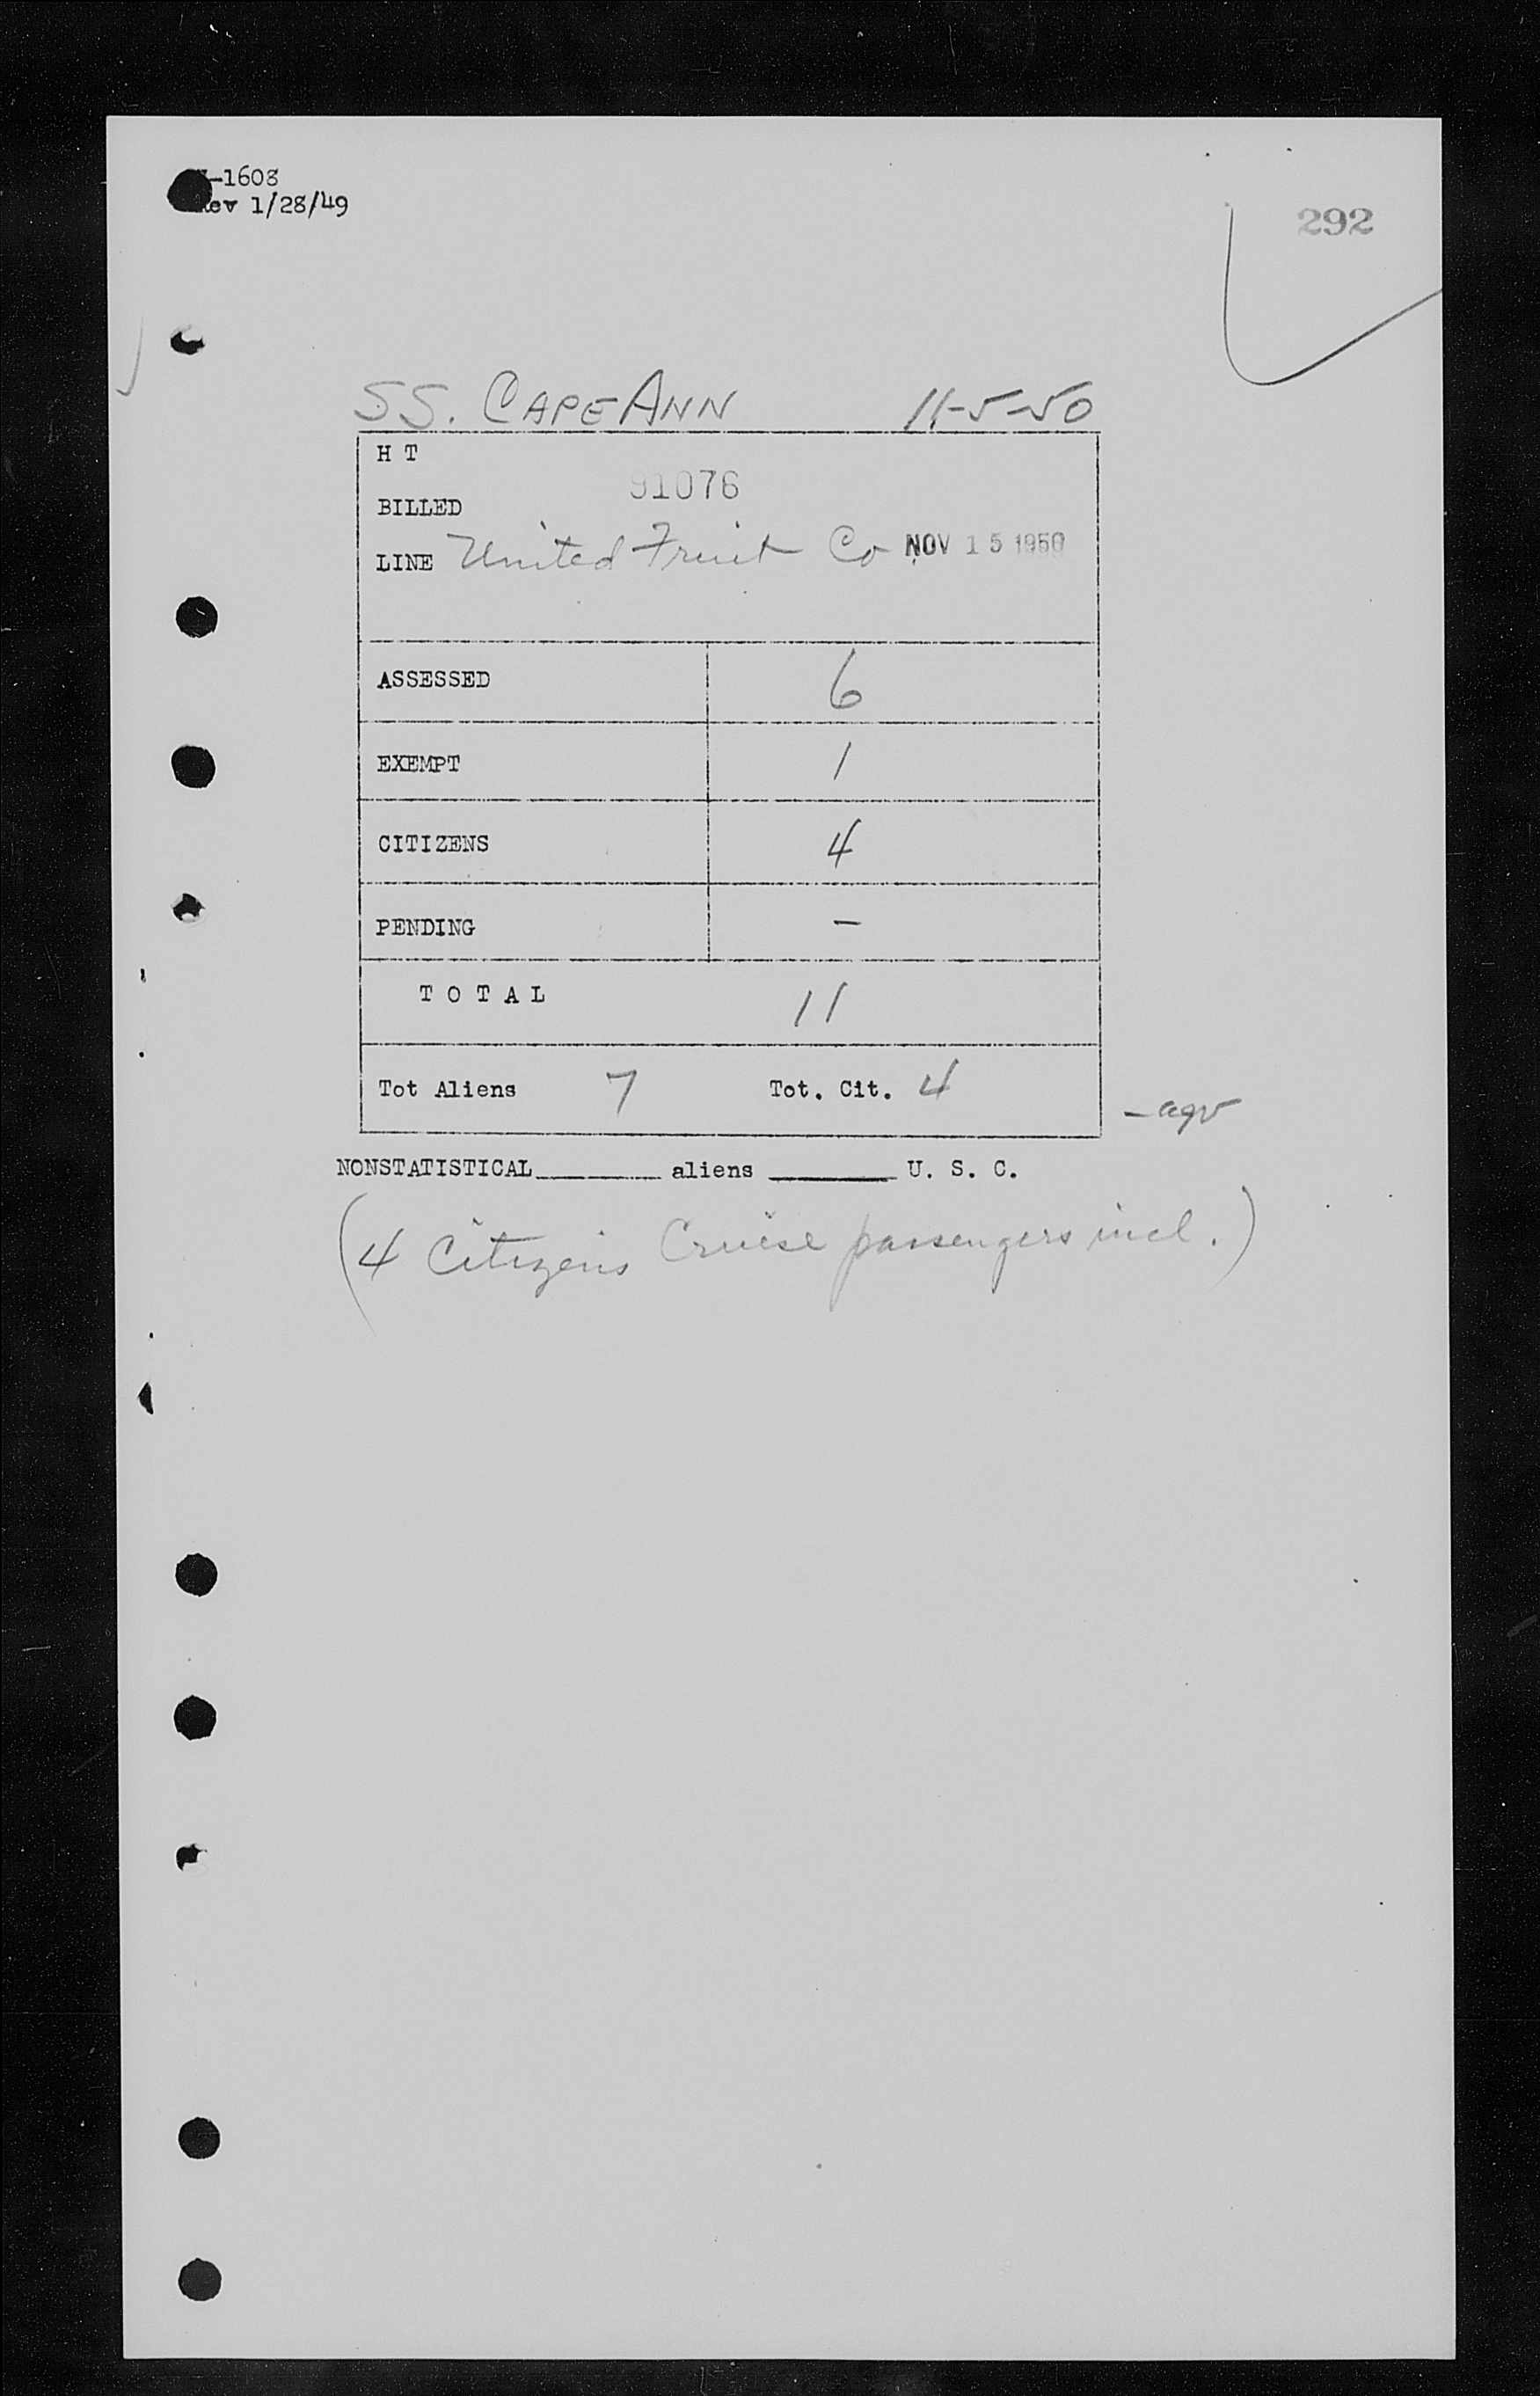 -1608
Rev 1/28/49
292
SS. CAPE ANN 11-5-50
H T
91076
BILLED
LINE United Fruit Co NOV 15 1950
ASSESSED 6
EXEMPT 1
CITIZENS 4
PENDING –
T O T A L 11
Tot Aliens 7 Tot. Cit. 4
NONSTATISTICAL________ aliens ________ U. S. C.
(4 Citizens Cruise passengers incl.)